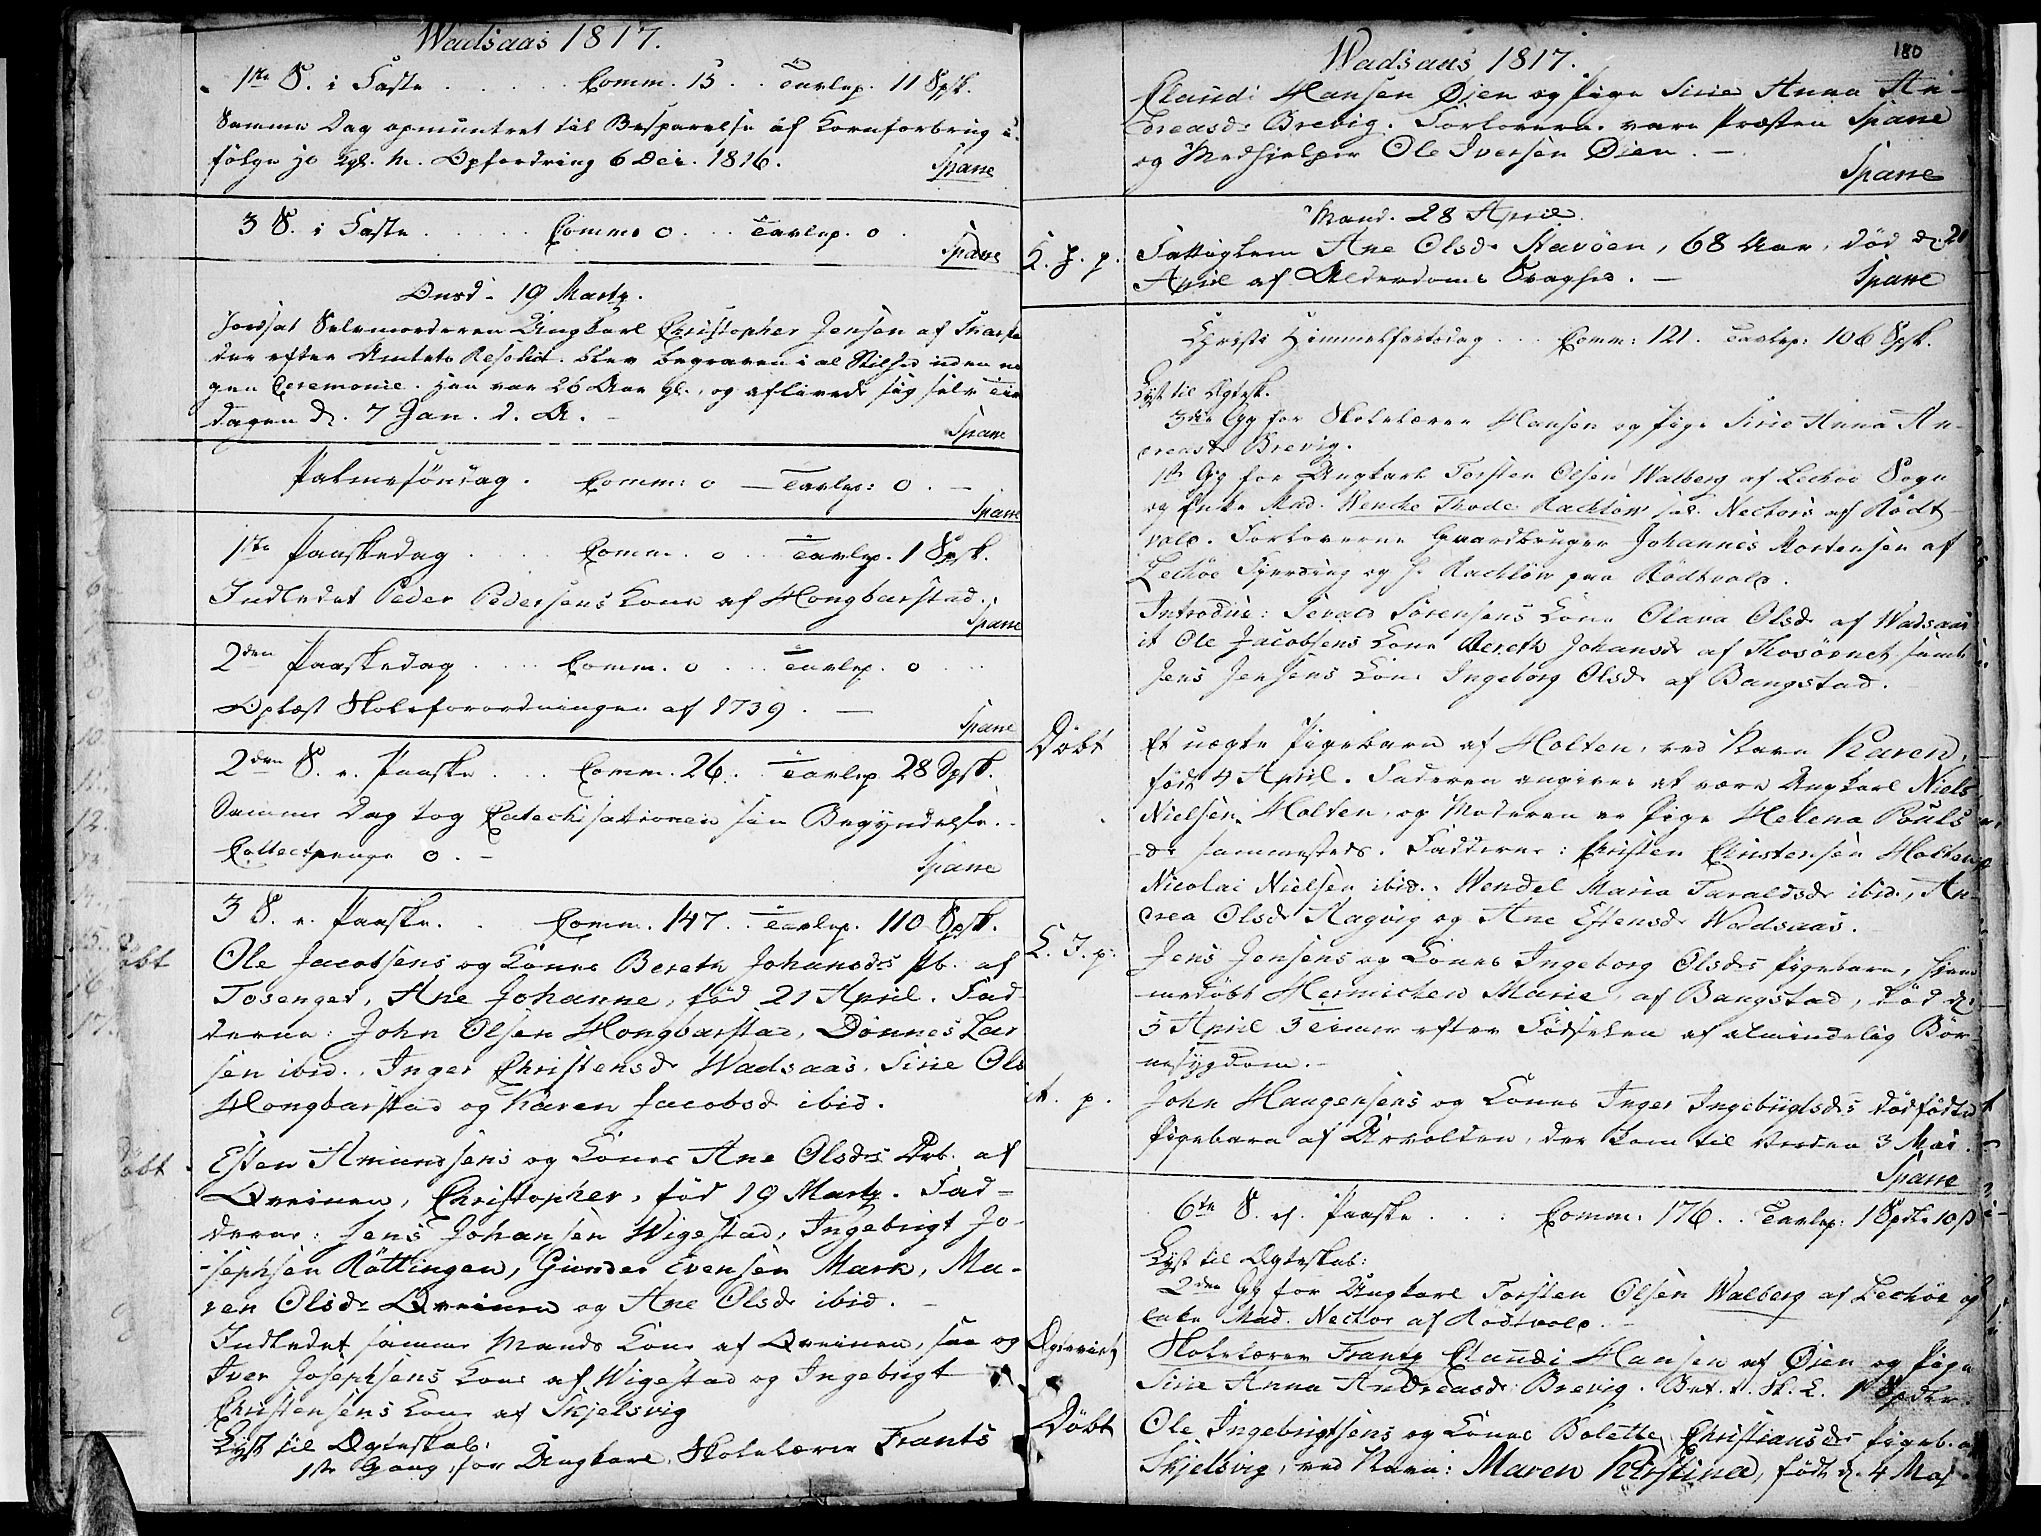 Wadsaas 1817.
1ste S. i Faste . . . . . Comm. 15 . . Tavlep. 11 Spsk.
Samme Dag opmuntret til Besparelse af Kornforbrug i-
følge jo kgl. Opfordring 6 Dec. 1816.
Spane
3 S. i Faste . . . . . Comm. 0 . . . Tavlep. 0 .
Spane
Onsd. 19 Martz.
Jordsat Selvmorderen Ungkarl Christopher Jensen af
der efter Amtets Resolut. blev begraven i al Stilhed uden no
gen Ceremonie. Han var 26 Aar gl., og aflivede sig selv Tirs
dagen d. 7 Jan. d. A. -
Spane
Palmesöndag. Comm: 0 — Tavlep: 0 . —
Spane
1ste Paaskedag . . . . Comm. 0 . . Tavlep. 1 Spsk.
Indledet Peder Pedersens Kone af Hongbarstad.
Spane
2den Paaskedag . . . . Comm. 0 . . . Tavlep. 0 . . .
Oplæst Skoleforordningen af 1739 . —
Spane
2den S. e. Paaske . . . Comm. 26 . . Tavlep. 28 Spsk.
Samme Dag tog Catechisationen sin Begyndelse. -
Collectpenge 0 . -
Spane
3 S. e. Paaske. . Comm. 147 . . Tavlep. 110 Spsk.
Döbt
Ole Jacobsens og Kones Bereth Johansds Pb. af
Tosenget, Ane Johanne, föd 21 April. Fad-
derne: John Olsen Hongbarstad, Dönnes Lar
sen ibid., Inger Christensdr Wadsaas, Sirie Ols
Hongbarstad og Karen Jacobsd ibid.
Döbt
Esten Amundsens og Kones Ane Olsds Drb. af
Qveinen, Christopher, föd 19 Martz. Fad-
derne: Jens Johansen Wigestad, Ingebrigt Jo-
sephsen Röttingen, Gunder Evensen Mark, Ma-
ren Olsdr Qveinen og Ane Olsdr ibid. -
Indledet samme Mands Kone af Qveinen, saa og
Iver Josephsens Kone af Wigestad og Ingebrigt
Christensens Kone af Skjelsvig
Lyst til Ægteskab:
1ste Gang for Ungkarl, Skolelærer Frants
180
Wadsaas 1817.
Claudi Hansen Öien og Pige Sirie Anna An-
dreasdr Brevig. Forlovere vare Præsten Spane
og Medhjelper Ole Iversen Öien. -
Spane
Mand. 28 April.
Fattiglem Ane Olsdr Havöen, 68 Aar, död d. 20
April af Alderdoms Svaghed. -
Spane
Christi Himmelfartsdag . . . Comm: 121. Tavlep: 106 Spsk.
Lyst til Ægtesk.
3die Gg for Skolelærer Hansen og Pige Sirie Anna An-
dreasdr Brevig.
1ste Gg for Ungkarl Torsten Olsen Walberg af Lechöe Sogn
og Enke Mad. Wencke Thode Rachlöw sal. Nechors af Rödt-
vold. Forloverne Gaardbruger Johannes Mortensen af
Lechöe Fjerding og Hr. Rachlöw paa Rödtvold.
Introdus: Sevald Sörensens Kone Olava Olsdr af Wadsaas
it Ole Jacobsens Kone Bereth Johansdr af Thosörnet samt
Jens Jensens Kone Ingeborg Olsdr af Bangstad.
Döbt
Et uægte Pigebarn af Holten, ved Navn Karen,
född 4 April. Faderen angives at være Ungkarl Niels
Nielsen Holten, og Moderen er Pige Helena Pouls
dr sammesteds. Fadderne: Christen Christensen Holten,
Nicolai Nielsen ibid., Wendel Maria Taraldsdr ibid., An-
drea Olsdr Hagvig og Ane Estensdr Wadsaas.
L. J. p.
Jens Jensens og Kones Ingeborg Olsdrs Pigebarn, hjem
medöbt Hermichen Marie, af Bangstad, död d.
5 April 3 Timer efter Födselen af almindelig Bör-
nesygdom. -
it. p.
John Haugensens og Kones Inger Ingebrigtsds dödfödte
Pigebarn af Urvolden, der kom til Verden 3 Mai.
Spane
6te S. ef. Paaske . . . Comm: 176 . . Tavlep: 1 Spdlr 10 s
Lyst til Ægteskab:
2den Gg for Ungkarl Torsten Olsen Walberg af Lechöe og
Enke Mad. Nechor af Rödtvold.
Ægteviet
Skolelærer Frantz Claudi Hansen af Öien og Pige
Sirie Anna Andreasdr Brevig. Bet. t. St. C. 1 Spdlr.
Döbt
Ole Ingebrigtsens og Kones Bolette Christiansds Pigeb. af
Skjelsvig, ved Navn: Maren Kirstina, född d. 4 Maj